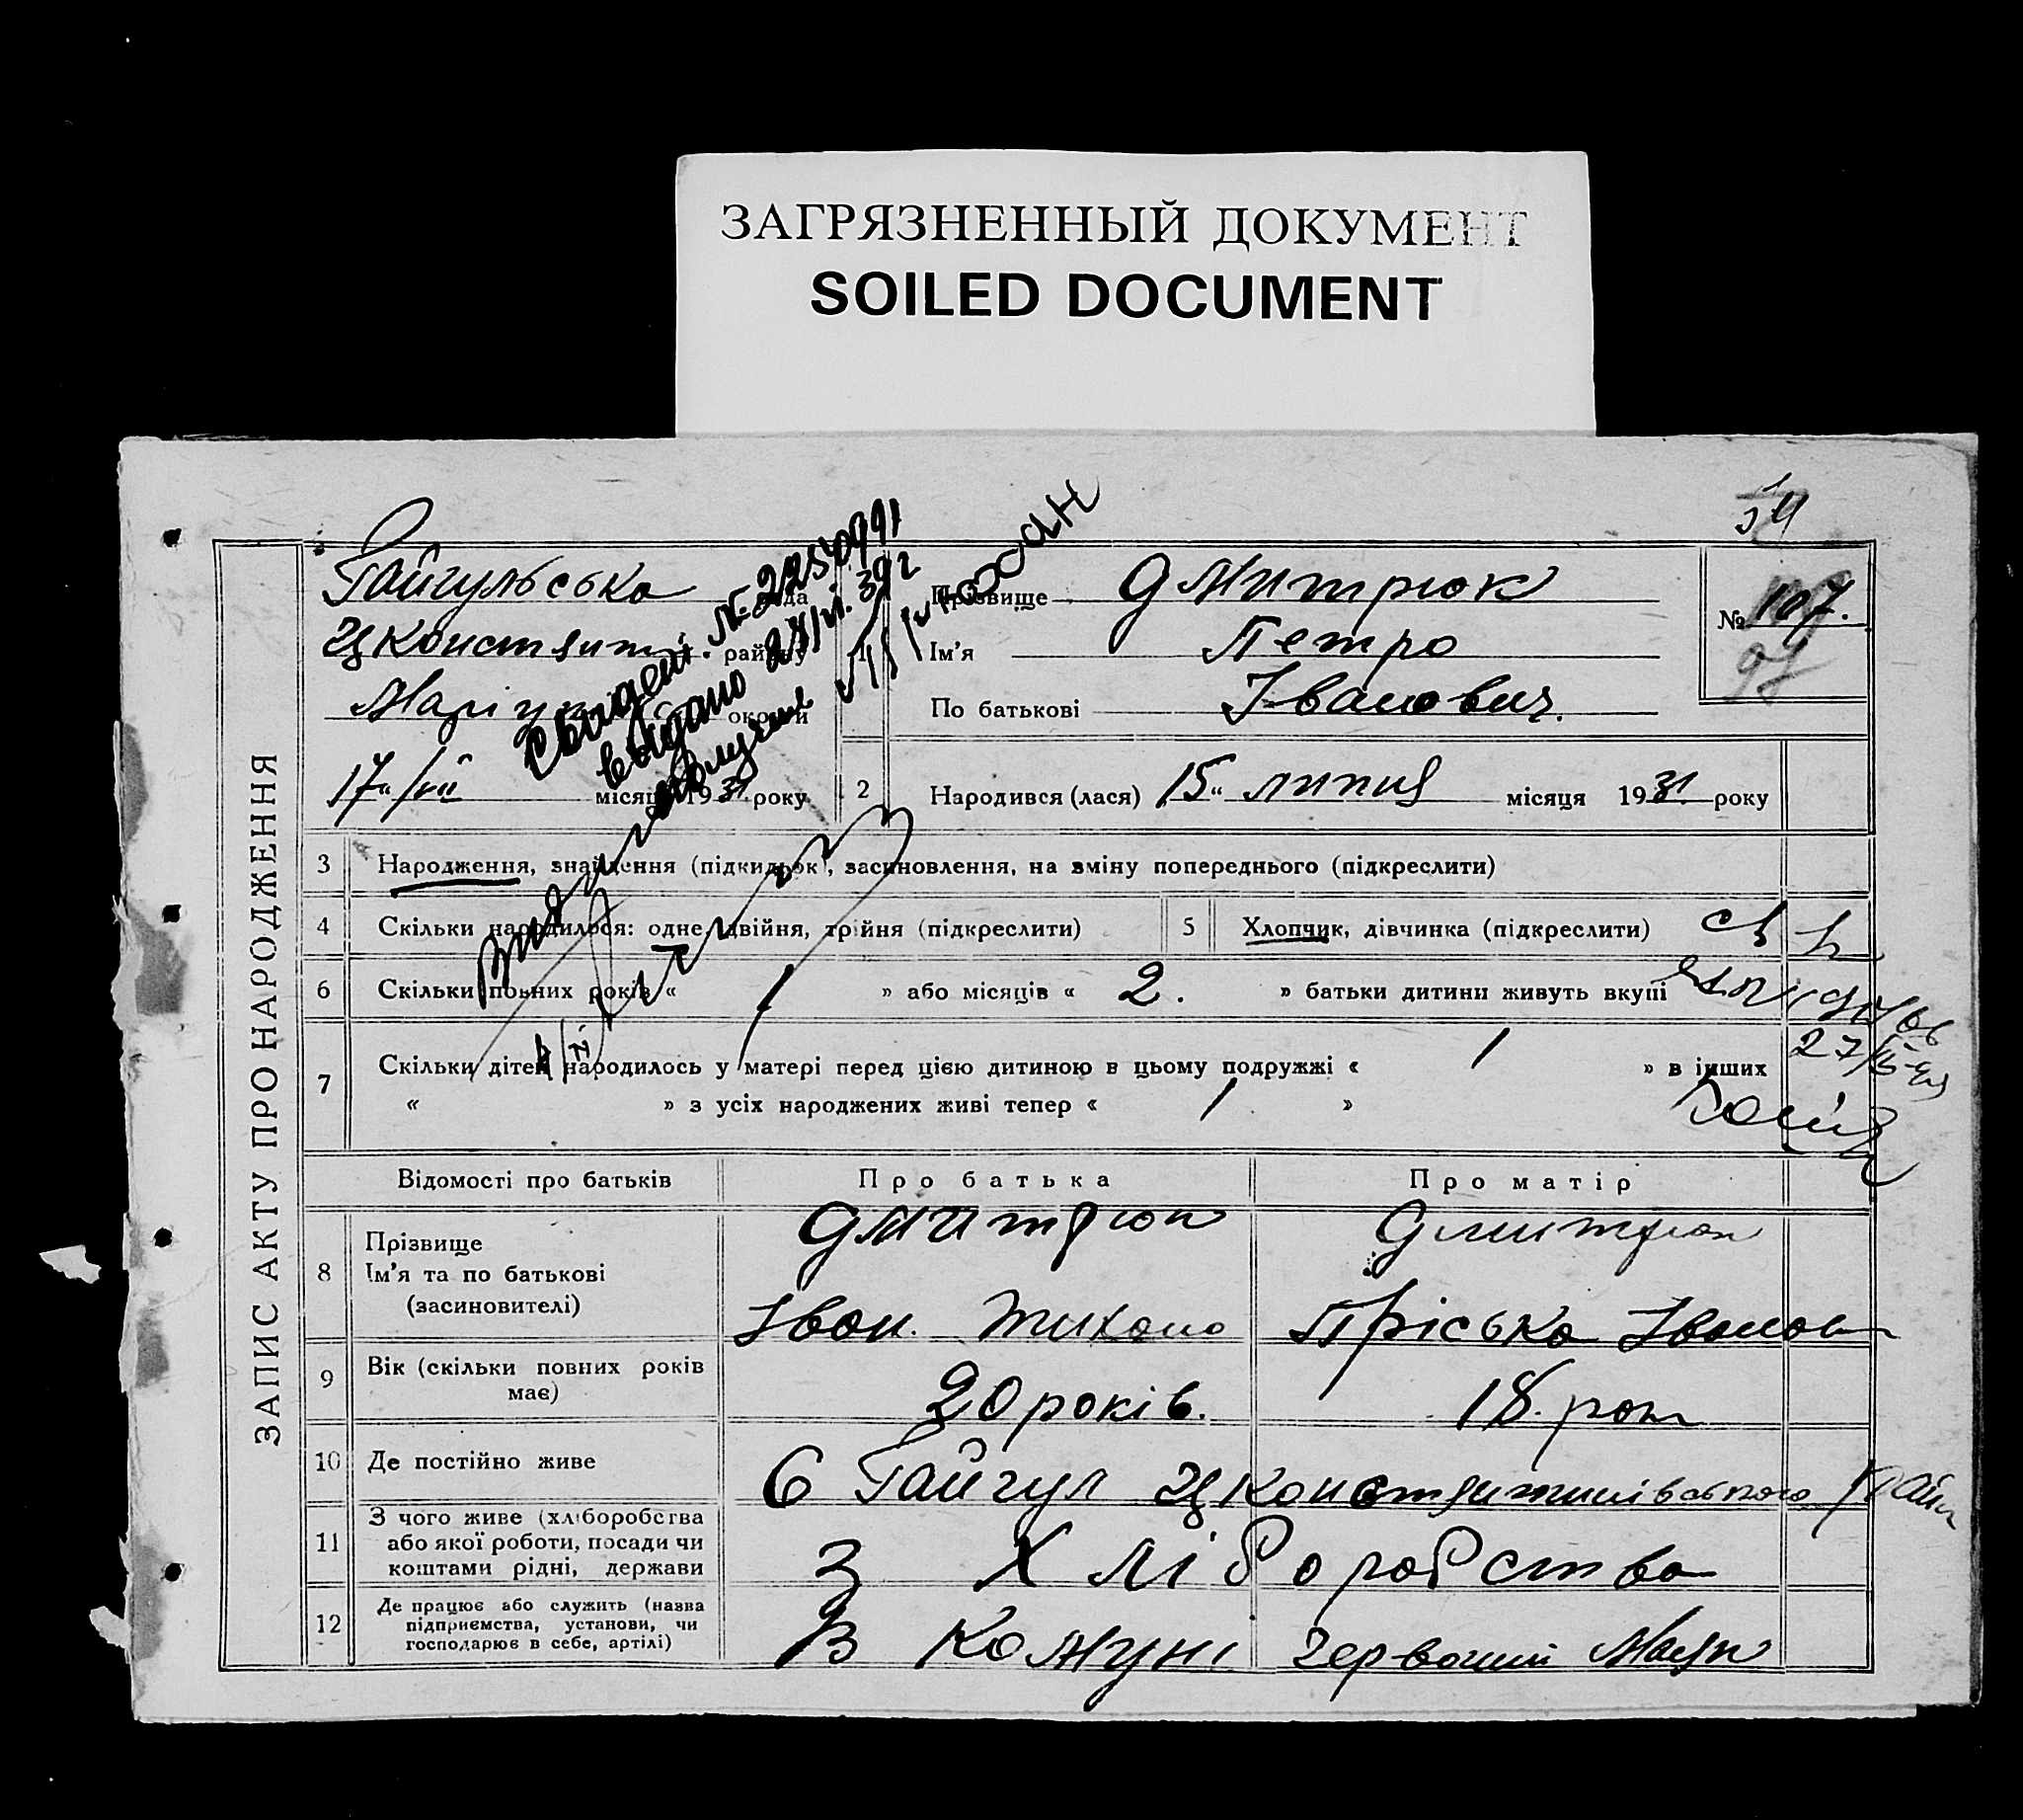 ЗАГРЯЗНЕННЫЙ ДОКУМЕНТ
SOILED DOCUMENT
54
ЗАПИС АКТУ ПРО НАРОДЖЕННЯ
Гайгульська рада
Цконстянт. району
Маріу округи
17 "/VII місяця 1931 року
1
Прізвище Дмитрюк
Ім'я Петро
По батькові Іванович.
№ 107.
97
2 Народився (лася) 15 " липня місяця 1931 року
3 Народження, знайдення (підкидьок), засиновлення, на зміну попереднього (підкреслити)
4 Скільки народилося: одне, двійня, трійня (підкреслити)
5 Хлопчик, дівчинка (підкреслити)
6 Скільки повних років « 1 » або місяців « 2. » батьки дитини живуть вкупі
7 Скільки дітей народилось у матері перед цією дитиною в цьому подружжі « / » в інших
« » з усіх народжених живі тепер « / »
Відомості про батьків Про батька Про матір
8 Прізвище
Ім'я та по батькові
(засиновителі)
Дмитрюк
Іван Тихоно
Дмитрюк
Пріська Іванов
9 Вік (скільки повних років має) 20 років. 18. рок
10 Де постійно живе С Гайгул Цконстянтинівського Рай
11 З чого живе (хліборобства
або якої роботи, посади чи
коштами рідні, держави З Хліборобства
12 Де працює або служить (назва
підприємства, установи, чи
господарює в себе, артілі) В Комуні Червоний Маяк